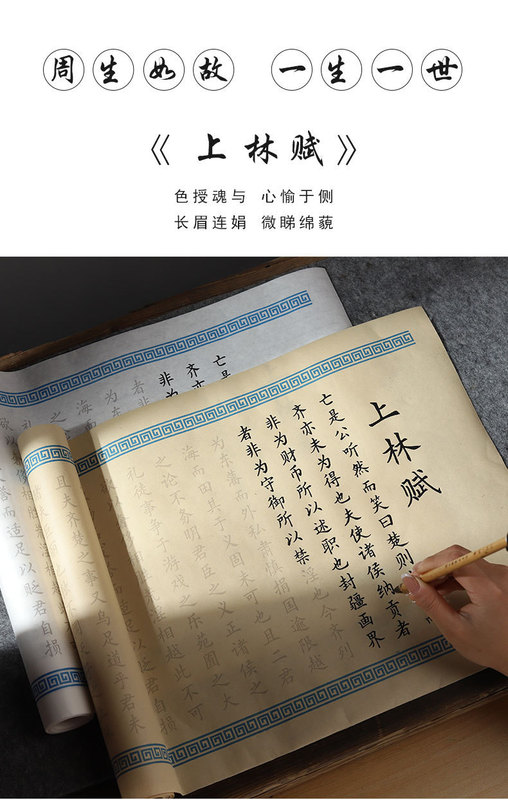 周生如故 一生一世
《上林赋》
色授魂与 心愉于侧
长眉连娟 微睇绵藐
上林赋
亡是公听然而笑曰楚则
齐亦未为得也夫使诸侯纳贡者
非为财币所以述职也封疆画界
者非为守御所以禁淫也今齐列
为东藩而外私肃慎捐国逾限越
海而田其于义固未可也且二君
之论不务明君臣之义正诸侯之
礼徒事争于游戏之乐苑囿之大
相越此不可
足以贬君自损
且夫齐楚之事又乌足道乎君未
亡是
齐亦
非为
者非
为东
海而